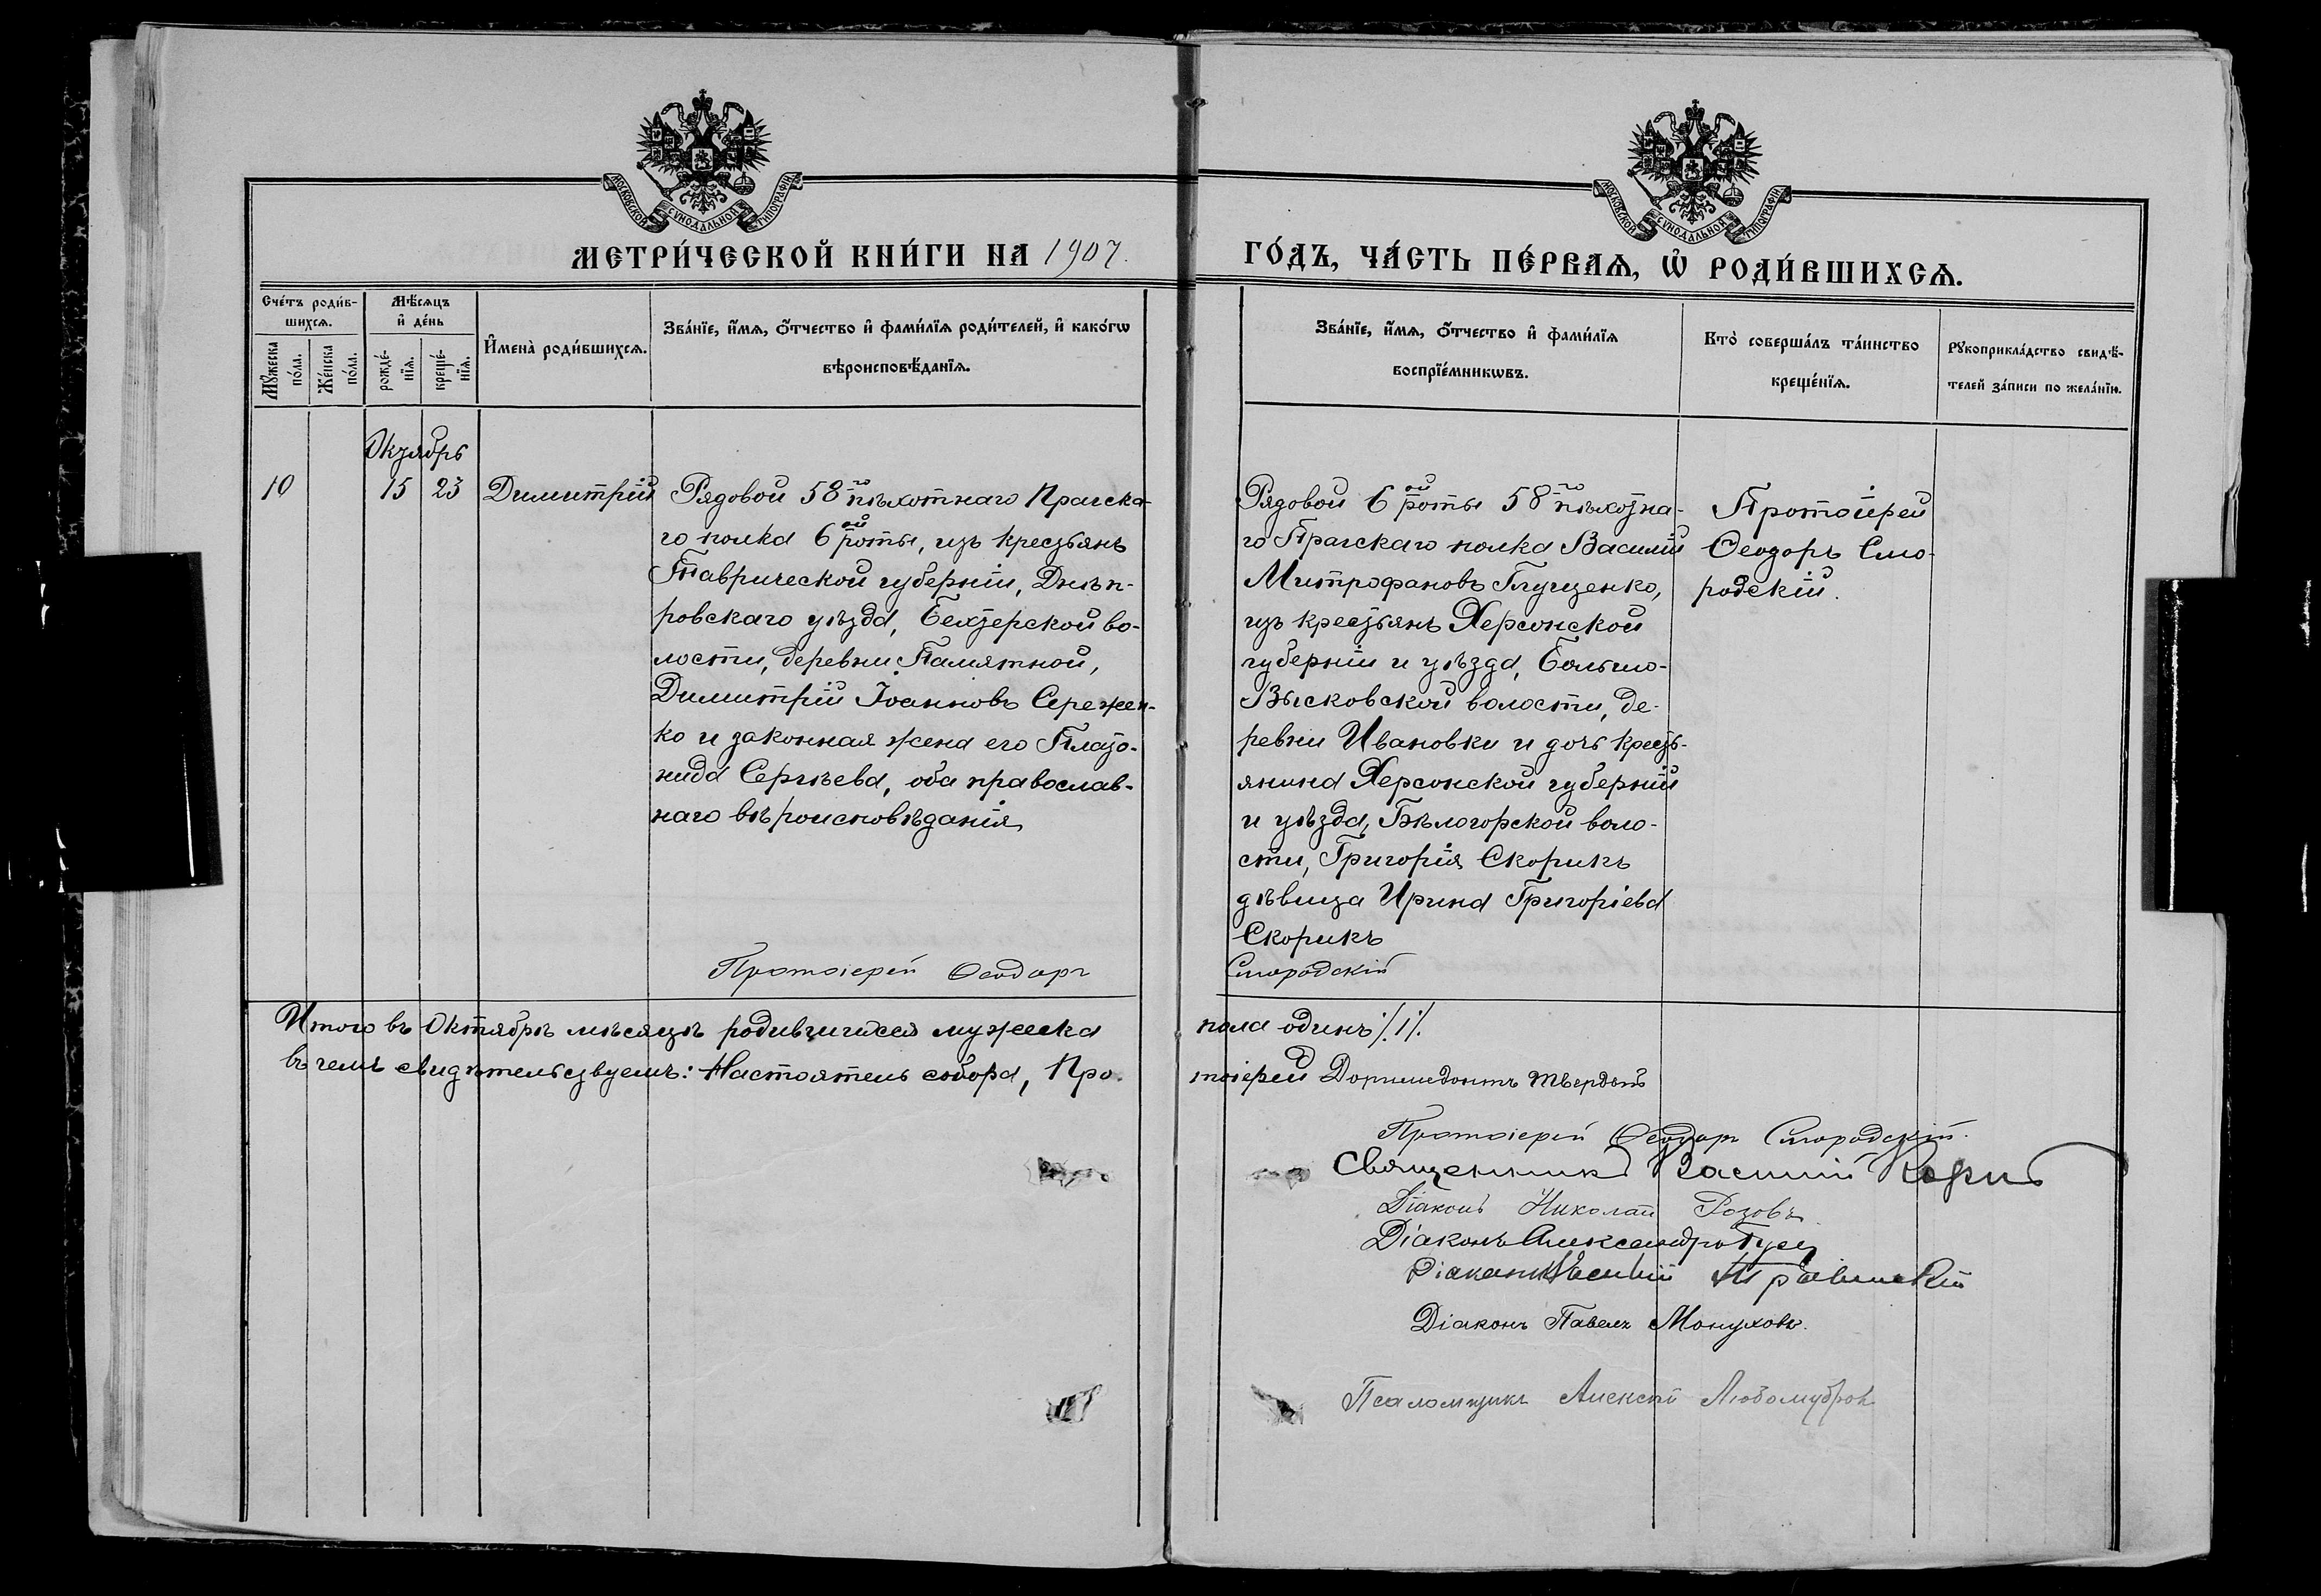 МОСКОВСКОЙ СѴНОДАЛЬНОЙ ТИПОГРАФІИ
МОСКОВСКОЙ СѴНОДАЛЬНОЙ ТИПОГРАФІИ
МЕТРИ́ЧЕСКОЙ КНИ́ГИ НА 1907.
ГО́ДЪ, ЧА́СТЬ ПЕ́РВАѦ, Ѽ РОДИ́ВШИХСѦ.
Сче́тъ роди́в-
шихсѧ.
Мѣ́сѧцъ
и҆ де́нь
Мꙋ́жеска
по́ла.
Же́нска
по́ла.
рожде́-
нїѧ.
креще́-
нїѧ.
И҆мена̀ роди́вшихсѧ.
Зва́нїе, и҆́мѧ, ѻ҆́тчество и҆ фами́лїѧ роди́телей, и҆ како́гѡ
вѣроисповѣ́данїѧ.
Зва́нїе, и҆́мѧ, ѻ҆́тчество и҆ фами́лїѧ
воспрїе́мникѡвъ.
Кто̀ соверша́лъ та́инство
креще́нїѧ.
Рꙋкоприкла́дство свидѣ́-
телей за́писи по жела́нїю.
Октябрь
10 15 23 Димитрій
Рядовой 58го пѣхотнаго Прагска-
го полка 6ой роты, изъ крестьянъ
Таврической губерніи, Днѣп-
ровскаго уѣзда, Бехтерской во-
лости, деревни Памятной,
Димитрій Іоанновъ Сережен-
ко и законная жена его Плато-
нида Сергѣева, оба православ-
наго вѣроисповѣданія
Рядовой 6ой роты 58го пѣхотна-
го Прагскаго полка Василій
Митрофановъ Глущенко,
изъ крестьянъ Херсонской
губерніи и уѣзда, Больше-
Высковской волости, де-
ревни Ивановки и дочь кресть-
янина Херсонской губерніи
и уѣзда, Бѣлогорской воло-
сти, Григорія Скорикъ
дѣвица Ирина Григоріева
Скорикъ
Протоіерей
Ѳеодоръ Смо-
родскій.
Протоіерей Ѳеодоръ
Смородскій
Итого въ Октябрѣ мѣсяцѣ родившихся мужеска
пола одинъ /1/.
въ чемъ свидѣтельствуемъ: Настоятель собора, Про-
тоіерей Доримедонтъ Твердый
Протоіерей Ѳеодоръ Смородскій.
Священникъ Василій
Діаконъ Николай Розовъ
Діаконъ Александръ
Діаконъ Василій
Діаконъ Павелъ Монуховъ.
Псаломщикъ Алексѣй Любомудровъ